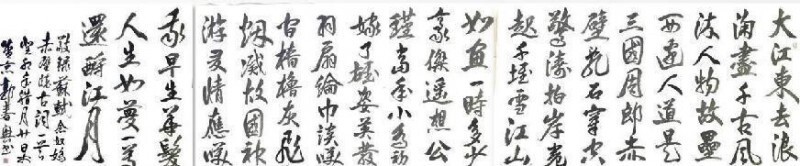 大江東去浪
淘盡千古風
流人物故壘
西邊人道是
三國周郎赤
壁乱石穿空
驚濤拍岸卷
起千堆雪江山
如畫一時多少
豪傑遥想公
瑾當年小喬初
嫁了雄姿英發
羽扇綸巾談笑
間檣櫓灰飛
烟滅故國神
游多情應笑
我早生華髮
人生如夢一尊
還酹江月
敬録蘇軾念奴嬌
赤壁懷古詞一首
年臘月廿日
春興書